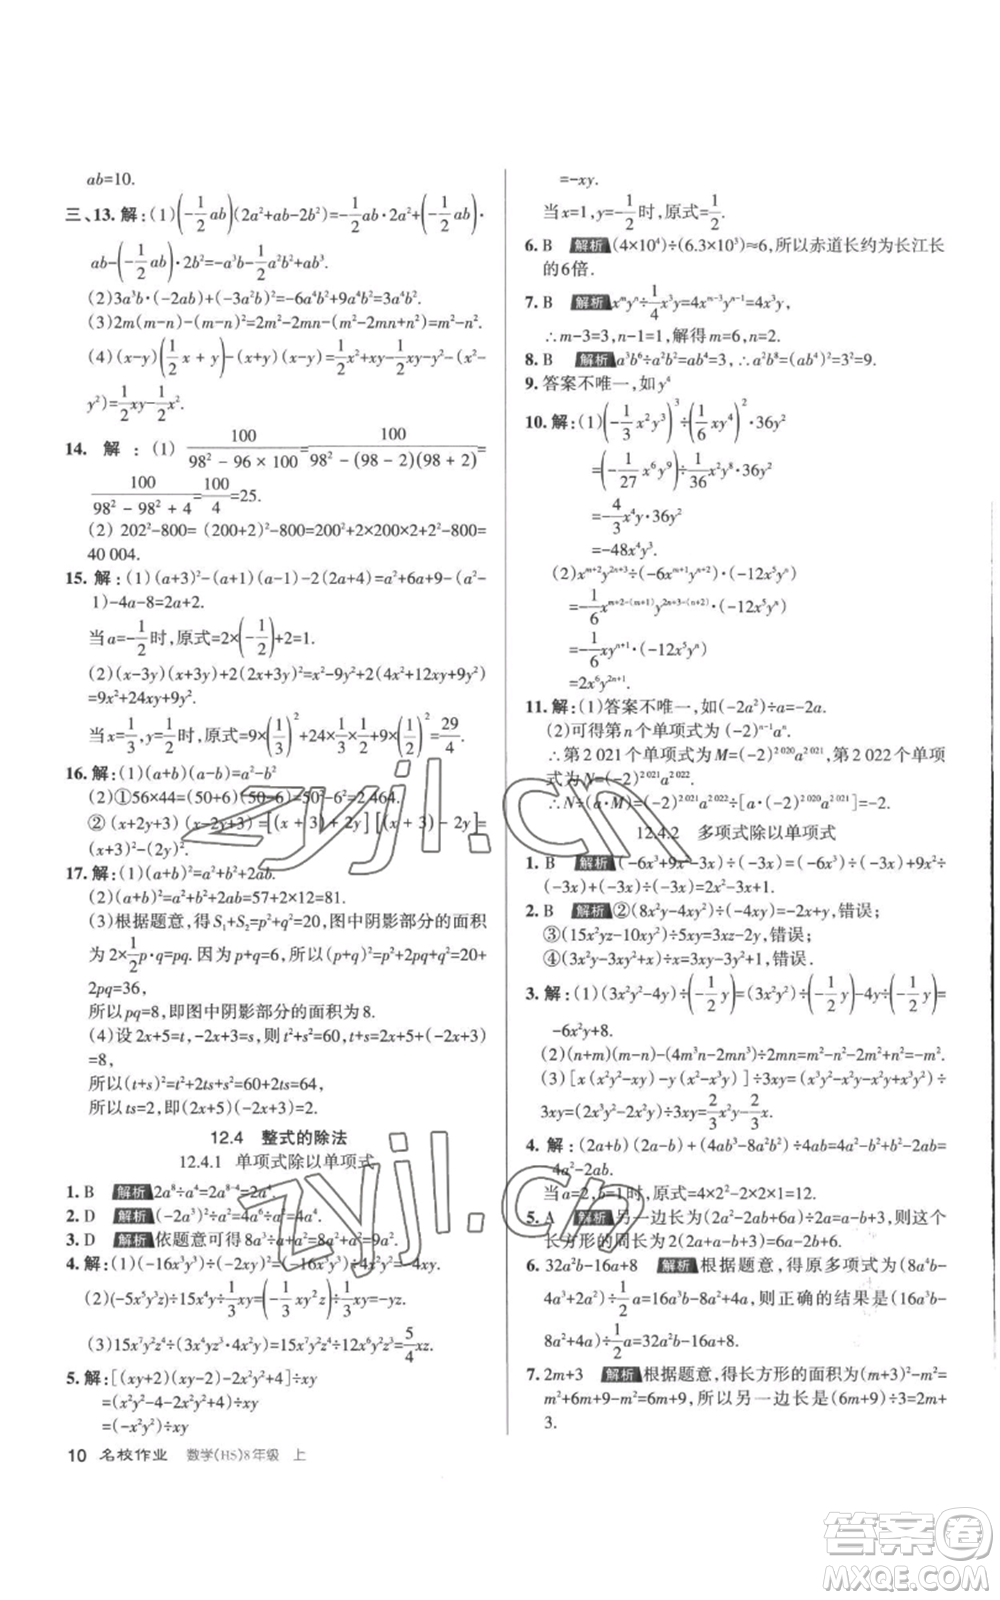 ab=10.
三、13. 解:(1)(-1/2 ab)(2a²+ab-2b²)=-1/2 ab·2a²+(-1/2 ab)·
ab-(-1/2 ab)·2b²=-a³b-1/2 a²b²+ab³.
(2)3a³b·(-2ab)+(-3a²b)²=-6a⁴b²+9a⁴b²=3a⁴b².
(3)2m(m-n)-(m-n)²=2m²-2mn-(m²-2mn+n²)=m²-n².
(4)(x-y)(1/2 x + y)-(x+y)(x-y)=1/2 x²+xy-1/2 xy-y²-(x²-
y²)=1/2 xy-1/2 x².
14. 解:(1) 100/(98² - 96 × 100)=100/(98² - (98 - 2)(98 + 2))=
100/(98² - 98² + 4)=100/4=25.
(2) 202²-800=(200+2)²-800=200²+2×200×2+4-800=
40 004.
15. 解:(1)(a+3)²-(a+1)(a-1)-2(2a+4)=a²+6a+9-(a²-
1)-4a-8=2a+2.
当a=-1/2时,原式=2×(-1/2)+2=1.
(2)(x-3y)(x+3y)+2(2x+3y)²=x²-9y²+2(4x²+12xy+9y²)
=9x²+24xy+9y².
当x=1/3,y=-1/2时,原式=9×(1/3)²+24×1/3×(-1/2)+9×(-1/2)²=-29/4.
16. 解:(1)(a+b)(a-b)=a²-b²
(2)①56×44=(50+6)(50-6)=50²-6²=2 464.
② (x+2y+3) (x-2y+3)=[(x + 3) + 2y][(x + 3) - 2y]=
(x+3)²-(2y)².
17. 解:(1)(a+b)²=a²+b²+2ab.
(2)(a+b)²=a²+b²+2ab=57+2×12=81.
(3)根据题意,得S₁+S₂=p²+q²=20,图中阴影部分的面积
为 2×1/2 p·q=pq. 因为p+q=6,所以(p+q)²=p²+q²+2pq=20+
2pq=36,
所以pq=8,即图中阴影部分的面积为8.
(4)设2x+5=t,-2x+3=s,则t²+s²=60,t+s=(2x+5)+(-2x+3)
=8,
所以(t+s)²=t²+2ts+s²=60+2ts=64,
所以ts=2,即(2x+5)(-2x+3)=2.
12.4 整式的除法
12.4.1 单项式除以单项式
1. B 解析 2a⁸÷a⁴=2a⁸⁻⁴=2a⁴.
2. D 解析 (-2a³)²÷a²=4a⁶÷a²=4a⁴.
3. D 解析 依题意可得8a³÷a+a²=8a²+a²=9a².
4. 解:(1)(-16x³y³)÷(-2xy)²=(-16x³y³)÷4x²y²=-4xy.
(2)(-5x⁵y³z)÷15x⁴y÷1/3 xy=(-1/3 xy²z)÷1/3 xy=-yz.
(3)15x⁷y⁷z⁶÷(4x²y²z²·3x⁴y⁴z⁴)=15x⁷y⁷z⁶÷12x⁶y⁶z⁶=5/4 xy.
5. 解:[(xy+2)(xy-2)-2x²y²+4]÷xy
=(x²y²-4-2x²y²+4)÷xy
=(-x²y²)÷xy
=-xy.
当x=1,y=-1/2时,原式=1/2.
6. B 解析 (4×10⁴)÷(6.3×10³)≈6,所以赤道长约为长江长
的6倍.
7. B 解析 xᵐyⁿ÷1/4 x³y=4xᵐ⁻³yⁿ⁻¹=4x³y,
∴m-3=3,n-1=1,解得m=6,n=2.
8. B 解析 a³b⁶÷a²b²=ab⁴=3,∴a²b⁸=(ab⁴)²=3²=9.
9. 答案不唯一,如y⁴
10. 解:(1)(-1/3 x²y³)³÷(1/6 xy⁴)²·36y²
=(-1/27 x⁶y⁹)÷1/36 x²y⁸·36y²
=-4/3 x⁴y·36y²
=-48x⁴y³.
(2)xᵐ⁺²y²ⁿ⁺³÷(-6xᵐ⁺¹yⁿ⁺²)·(-12x⁵yⁿ)
=-1/6 xᵐ⁺²⁻⁽ᵐ⁺¹⁾y²ⁿ⁺³⁻⁽ⁿ⁺²⁾·(-12x⁵yⁿ)
=-1/6 xyⁿ⁺¹·(-12x⁵yⁿ)
=2x⁶y²ⁿ⁺¹.
11. 解:(1)答案不唯一,如(-2a²)÷a=-2a.
(2)可得第n个单项式为 (-2)ⁿ⁻¹aⁿ.
∴第2 021个单项式M=(-2)²⁰²⁰a²⁰²¹,第2 022个单项
式为N=(-2)²⁰²¹a²⁰²².
∴N÷(a·M)=(-2)²⁰²¹a²⁰²²÷[a·(-2)²⁰²⁰a²⁰²¹]=-2.
12.4.2 多项式除以单项式
1. B 解析 (-6x³+9x²-3x)÷(-3x)=(-6x³)÷(-3x)+9x²÷
(-3x)+(-3x)÷(-3x)=2x²-3x+1.
2. B 解析 ②(8x²y-4xy²)÷(-4xy)=-2x+y,错误;
③(15x²yz-10xy²)÷5xy=3xz-2y,错误;
④(3x²y-3xy²+x)÷x=3xy-3y²+1,错误.
3. 解:(1)(3x²y²-4y)÷(-1/2 y)=(3x²y²)÷(-1/2 y)-4y÷(-1/2 y)=
-6x²y+8.
(2)(n+m)(m-n)-(4m³n-2mn³)÷2mn=m²-n²-2m²+n²=-m².
(3)[x(x²y²-xy)-y(x²-x³y)]÷3x²y=(x³y²-x²y-x²y+x³y²)÷
3x²y=(2x³y²-2x²y)÷3x²y=2/3 xy-2/3.
4. 解: (2a+b) (2a-b)+ (2ab³-4a²b²)÷2ab²=4a²-b²+b²-2ab=
4a²-2ab.
当a=2,b=1时,原式=4×2²-2×2×1=12.
5. A 解析 另一边长为(2a²-2ab+6a)÷2a=a-b+3,所以这个
长方形的周长为2(2a+a-b+3)=6a-2b+6.
6. 32a²b-16a+8 解析 根据题意,得原多项式为(8a⁴b-
4a³+2a²)÷1/2 a=16a³b-8a²+4a,则正确的结果是(16a³b-
8a²+4a)÷1/2 a=32a²b-16a+8.
7. 2m+3 解析 根据题意,得长方形的面积为(m+3)²-m²=
m²+6m+9-m²=6m+9,所以另一边长为(6m+9)÷3=2m+
3.
10 名校作业 数学(HS)8年级 上
zyjl.cn
zyjl.cn
答案卷
MXQE.COM